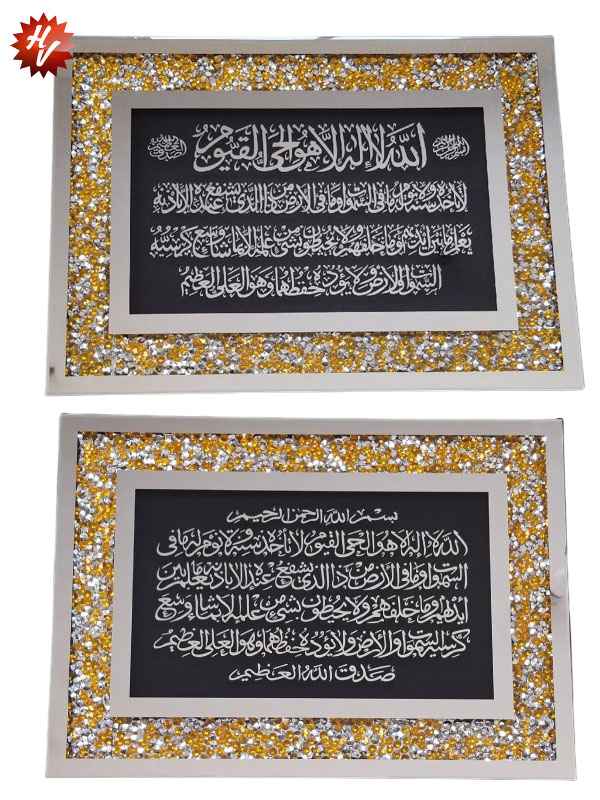 HV
الله لا إله إلا هو الحي القيوم
لا تأخذه سنة ولا نوم له ما في السموات وما في الأرض من ذا الذي يشفع عنده إلا بإذنه
يعلم ما بين أيديهم وما خلفهم ولا يحيطون بشيء من علمه إلا بما شاء وسع كرسيه
السموات والأرض ولا يؤده حفظهما وهو العلي العظيم
بسم الله الرحمن الرحيم
الله لا إله إلا هو الحي القيوم لا تأخذه سنة ولا نوم له ما في
السموات وما في الأرض من ذا الذي يشفع عنده إلا بإذنه يعلم ما بين
أيديهم وما خلفهم ولا يحيطون بشيء من علمه إلا بما شاء وسع
كرسيه السموات والأرض ولا يؤده حفظهما وهو العلي العظيم
صدق الله العظيم